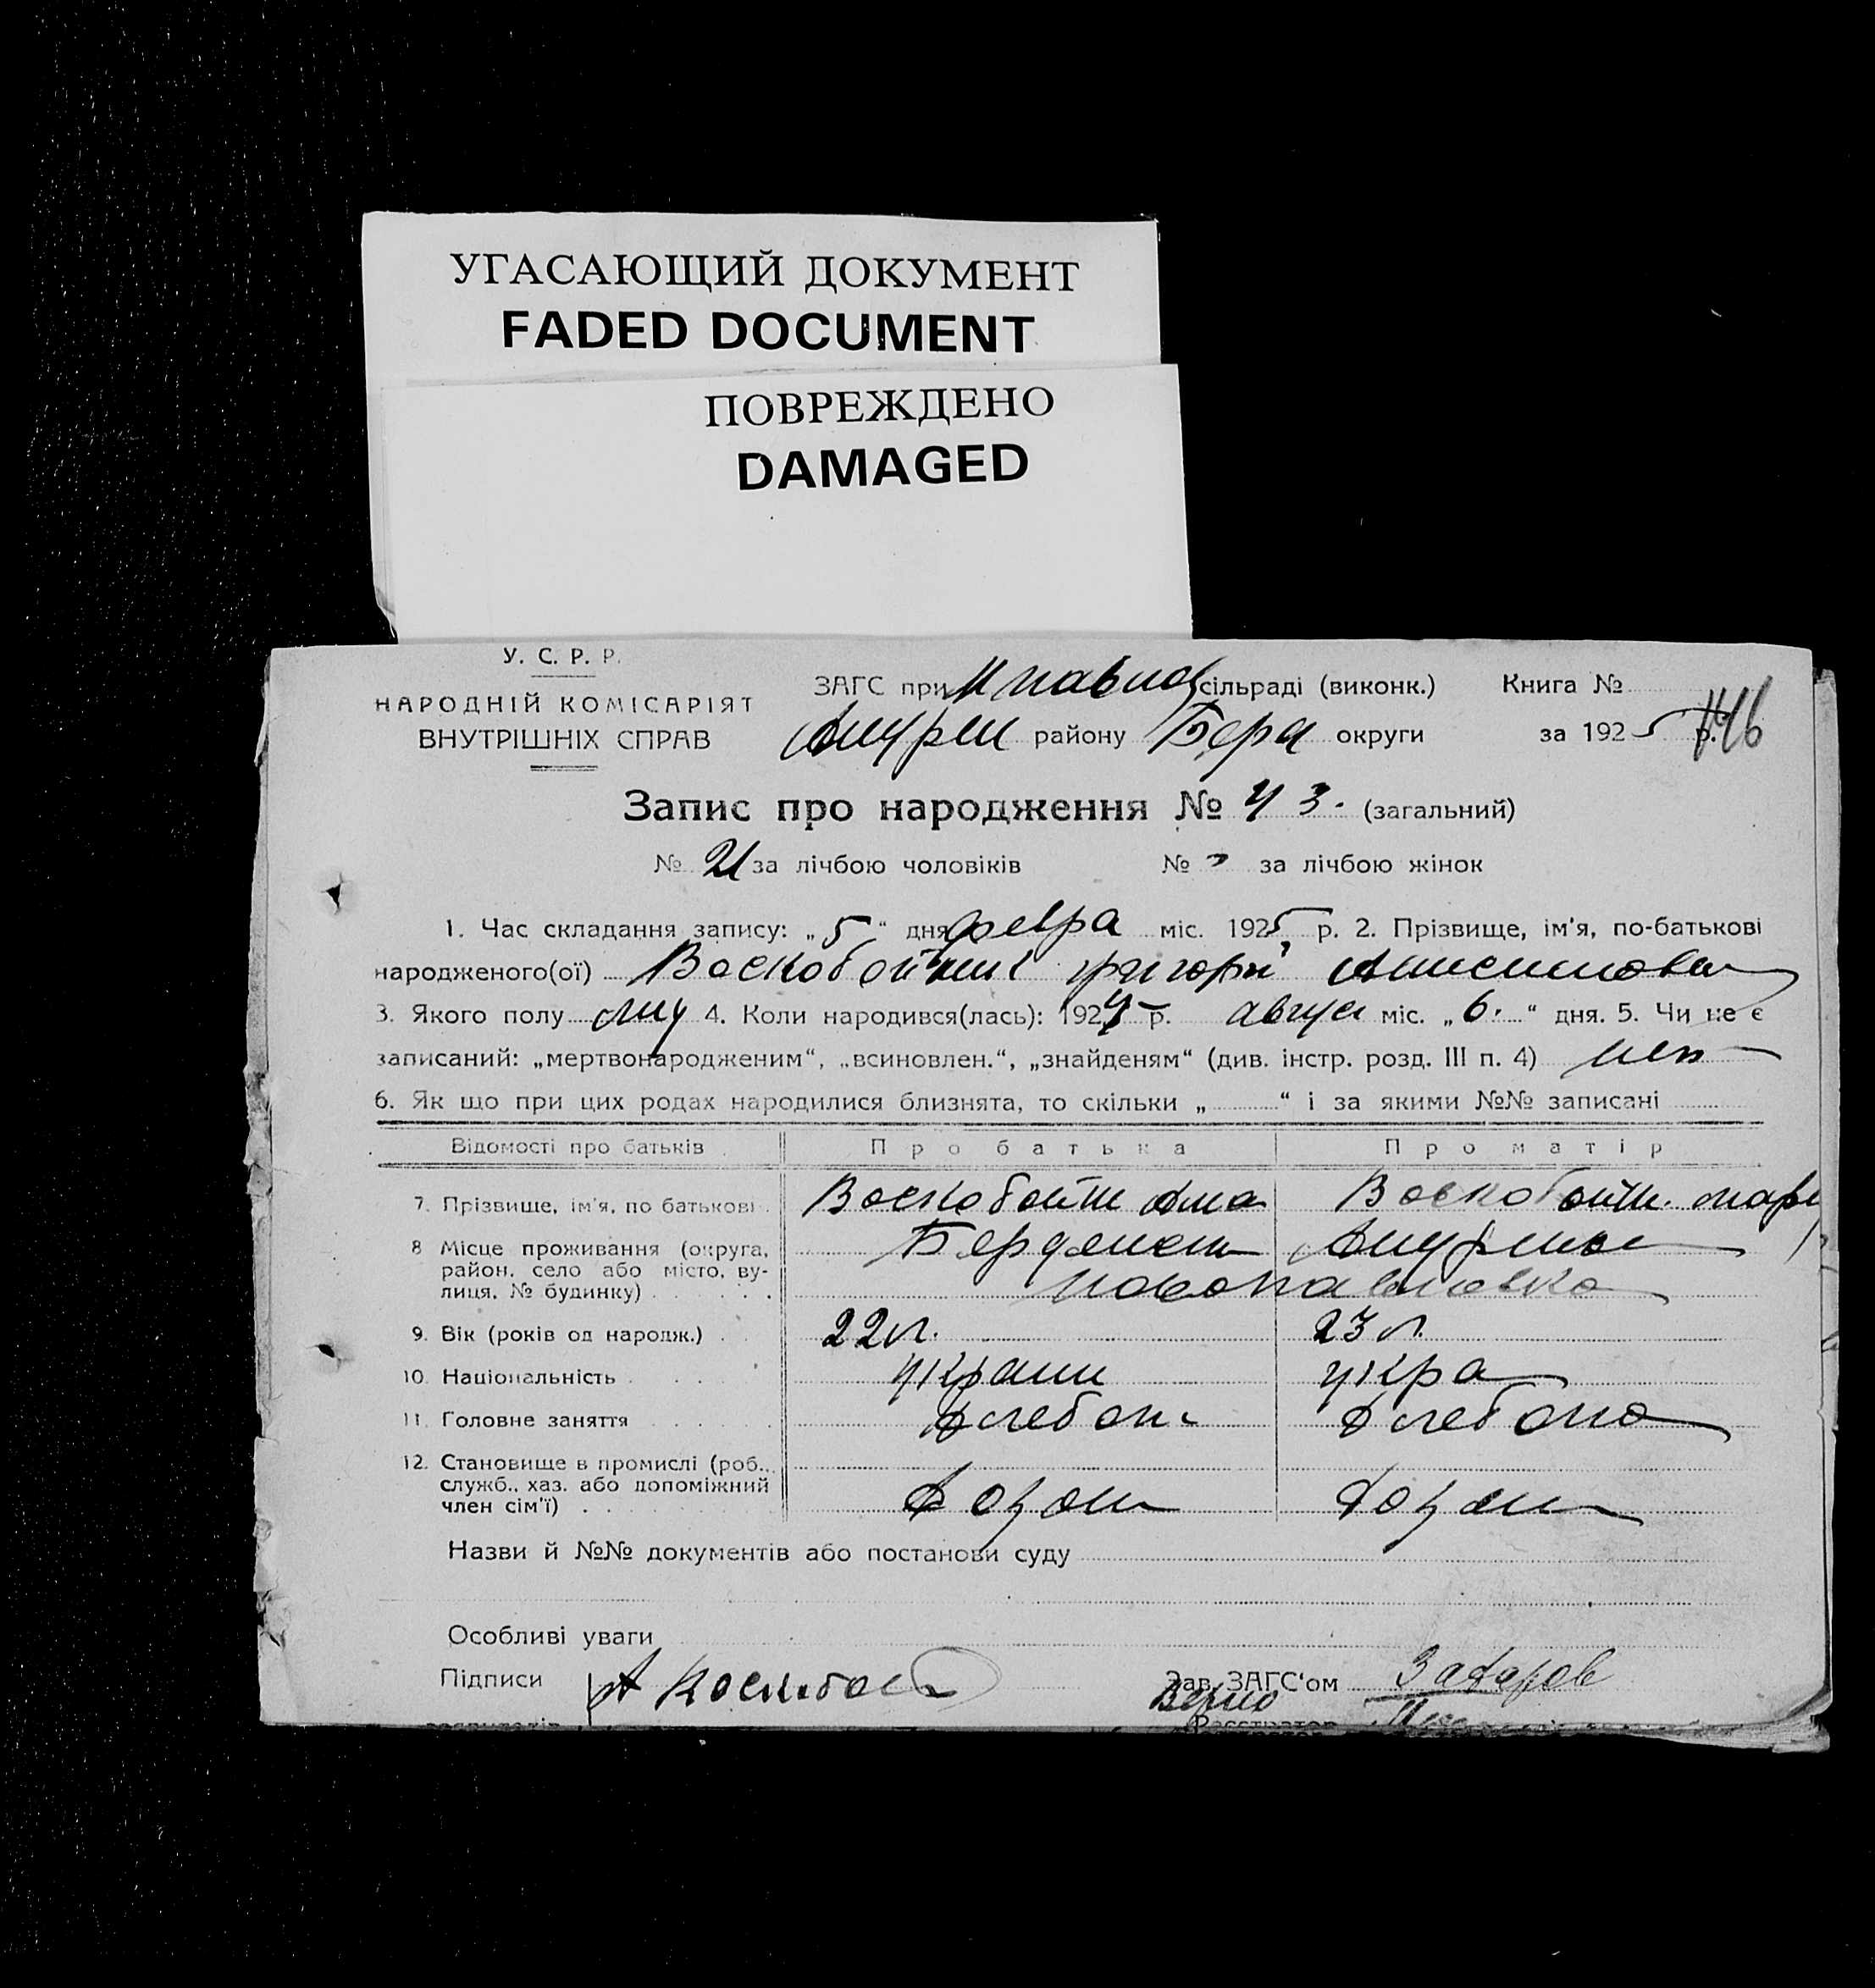 УГАСАЮЩИЙ ДОКУМЕНТ
FADED DOCUMENT
ПОВРЕЖДЕНО
DAMAGED
У. С. Р. Р.
НАРОДНІЙ КОМІСАРІЯТ
ВНУТРІШНІХ СПРАВ
ЗАГС при сільраді (виконк.) Книга №
району Берд округи за 1925 р.
146
Запис про народження № 43. (загальний)
№ 21 за лічбою чоловіків № за лічбою жінок
1. Час складання запису: „5“ дня февра міс. 1925 р. 2. Прізвище, ім'я, по-батькові
народженого(ої) Воскобойник григорий
3. Якого полу муж 4. Коли народився(лась): 1924 р. август міс. „6.“ дня. 5. Чи не є
записаний: „мертвонародженим“, „всиновлен.“, „знайденям“ (див. інстр. розд. III п. 4) нет
6. Як що при цих родах народилися близнята, то скільки „ “ і за якими №№ записані
Відомості про батьків Про батька Про матір
7. Прізвище, ім'я, по батькові Воскобойн Воскобойн. мари
8 Місце проживання (округа, Бердянск
район, село або місто, ву-
лиця, № будинку) Новопавловка
9. Вік (років од народж.) 22 л. 23 л.
10. Національність украин укра
11. Головне заняття хлебоп
12. Становище в промислі (роб.,
служб., хаз. або допоміжний
член сім'ї) хозяин хозяин
Назви й №№ документів або постанови суду
Особливі уваги
Підписи Зав. ЗАГС'ом Захаров
Верно